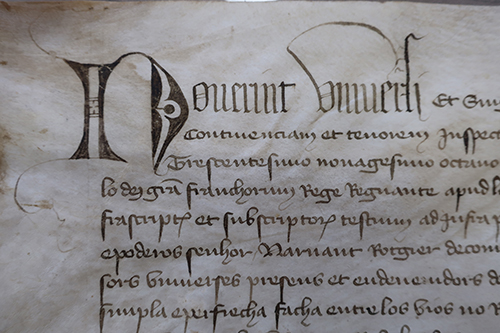 Noverint Universi Et Sin
Continenciam et tenorem Inspect
Trescentesimo nonagesimo octavo
lo dei gra franchorum Rege Regnante apud l
frascript et subscriptor testium ad infra
e poderos senhor Narnaut Rotgier de com
sors universes presens et endevenidors d
simpla e perfiecha facha entre los vios no R